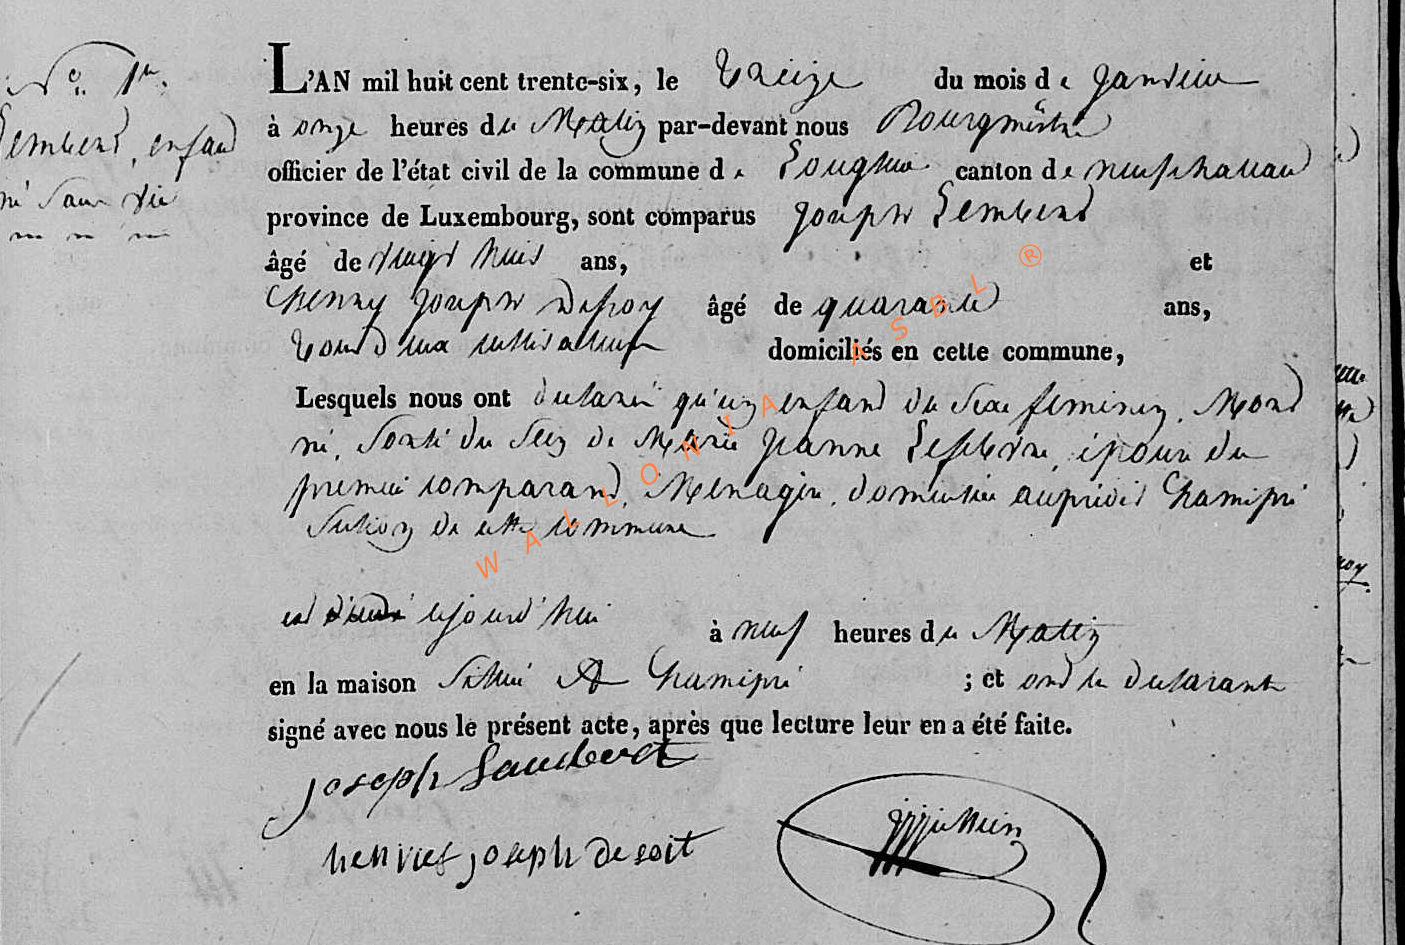 N° 1er.
Lembert, enfant
né sans vie
L'AN mil huit cent trente-six, le treize du mois de Janvier
à onze heures du Matin par-devant nous Bourgmestre
officier de l'état civil de la commune de Longlier canton de neufchateau
province de Luxembourg, sont comparus Joseph Lembert
âgé de vingt huit ans, et
Henry Joseph Defoy âgé de quarante ans,
tous deux cultivateurs domiciliés en cette commune,
Lesquels nous ont declaré qu'un enfant du sexe feminin, Mort
né, sorti du sein de Marie Jeanne Lefebvre, épouse du
premier comparant, Menagère, domiciliée au prédit Hamipré
section de cette commune
est cejourd'hui à neuf heures du Matin
en la maison située A Hamipré ; et ont les declarants
signé avec nous le présent acte, après que lecture leur en a été faite.
joseph Lambert
henries joseph de soit
WALLONIA ASBL ®